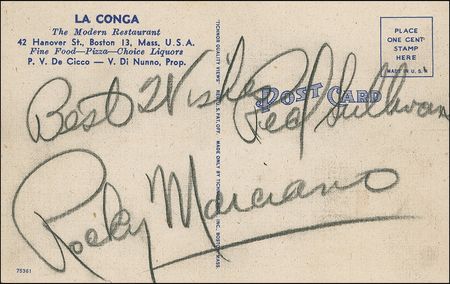 LA CONGA
The Modern Restaurant
42 Hanover St., Boston 13, Mass. U.S.A.
Fine Food—Pizza—Choice Liquors
P. V. De Cicco — V. Di Nunno, Prop.
PLACE
ONE CENT
STAMP
HERE
MADE IN U.S.A.
POST CARD
Best Wishes
Red Sullivan
Rocky Marciano
TICHNOR QUALITY VIEWS REG. U. S. PAT. OFF. MADE ONLY BY TICHNOR BROS., INC., BOSTON, MASS.
75361